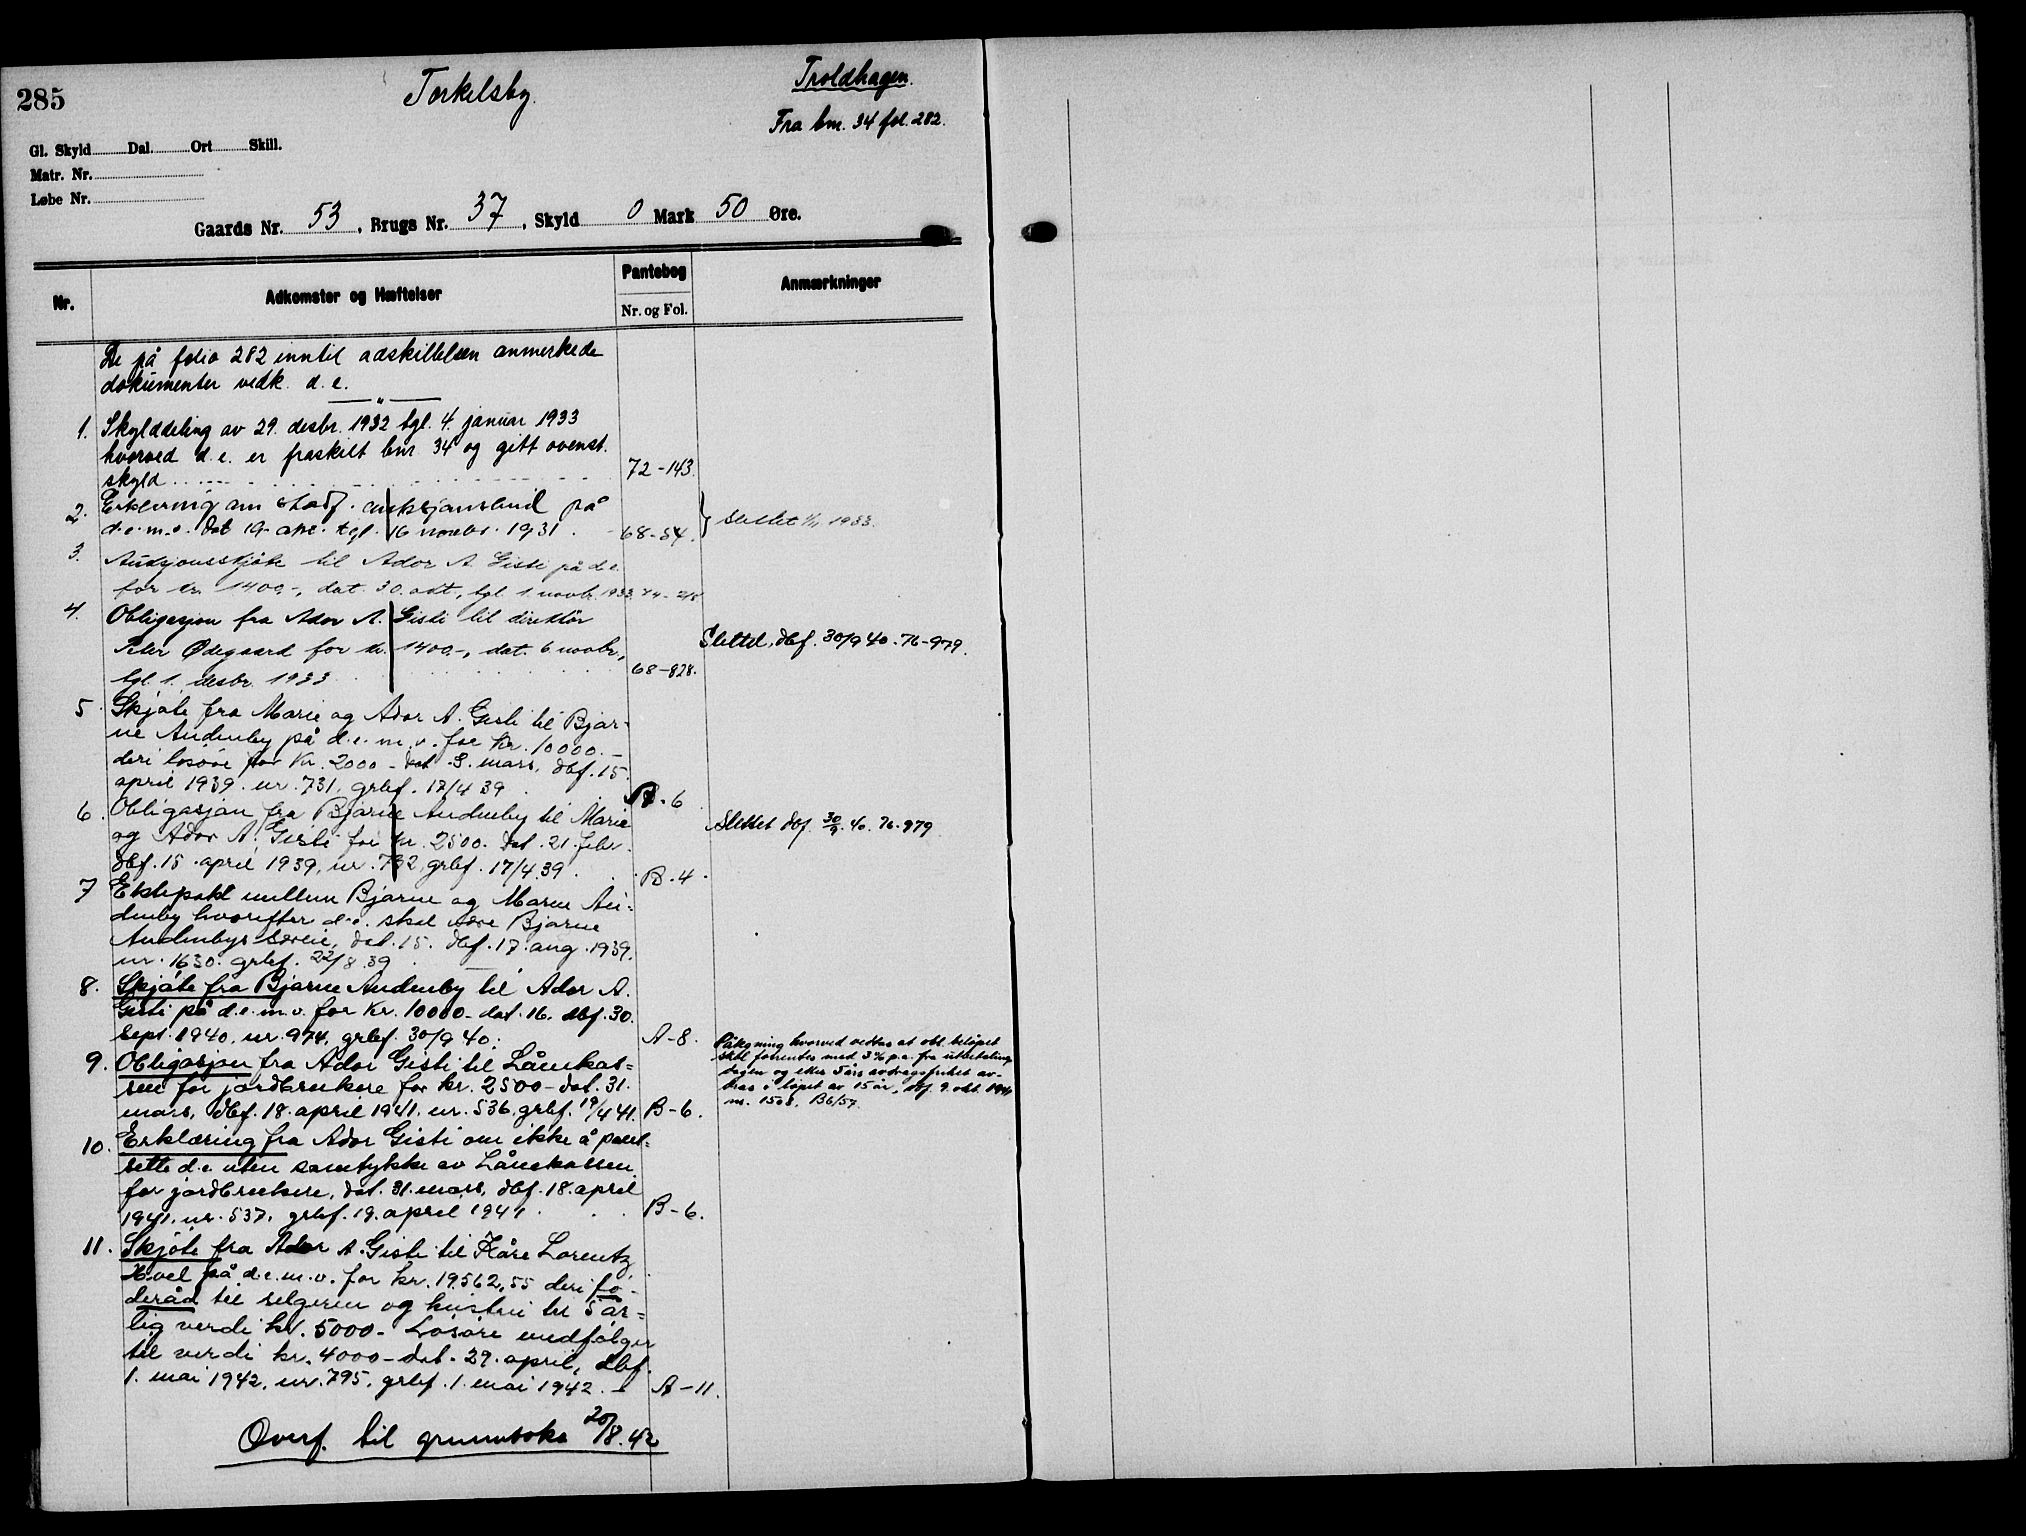 285
Torkelsby.
Troldhagen.
Fra bnr. 34 fol. 282.
Gl. Skyld Dal. Ort Skill.
Matr. Nr.
Løbe Nr.
Gaards Nr. 53, Brugs Nr. 37, Skyld 0 Mark 50 Øre.
Nr. Adkomster og Hæftelser Pantebog Anmærkninger
Nr. og Fol.
De på folio 282 inntil adskillelsen anmerkede
dokumenter vedk. d. e.
1. Skylddeling av 29. desbr. 1932 tgl. 4. januar 1933
hvorved d. e. er fraskilt bnr. 34 og gitt ovenst.
skyld 72-143.
2. Erklæring om stadf. auksjonsbud på
d. e. m. v. dat 19. tgl. 16 novebr. 1931. 68-54. Slettet 1/11 1933.
3. Auksjonsskjøte til Ador A. Gisti på d. e.
for kr. 1400.-, dat. 30. okt, tgl. 1. novb. 1933.
4. Obligasjon fra Ador A. Gisti til direktør
Peter Ødegaard for kr. 1400.-, dat. 6 novbr., Slettet, dbf. 30/9 40. 76-979.
tgl. 1. desbr. 1933 68-828.
5. Skjøte fra Marie og Ador A. Gisti til Bjar-
ne Audenby på d. e. m. v. for kr. 10000.-
deri løsøre for kr. 2000- dat 3. mars, dbf. 15
april 1939. nr. 731, grbf. 17/4 39. A-6
6. Obligasjon fra Bjarne Audenby til Marie
og Ador A. Gisti for kr. 2500. dat. 21. febr. Slettet dbf. 30/9. 40. 76-979.
dbf. 15 april 1939, nr. 732, grbf. 17/4.39. B-4.
7 Ektepakt mellem Bjarne og Maren Au-
denby hvorefter d. e. skal være Bjarne
Audenbys særeie, dat. 15. dbf. 17. aug. 1939.
nr. 1630. grbf. 22/8. 39
8. Skjøte fra Bjarne Audenby til Ador A.
Gisti på d. e. m. v. for kr. 10000- dat. 16. dbf. 30.
sept. 1940, nr. 974, grbf. 30/9 40. A-8.
9. Obligasjon fra Ador Gisti til Lånekas-
sen for jordbrukere for kr. 2500- dat. 31.
mars, dbf. 18. april 1941, nr. 536, grbf. 19/4 41. B-6.
Påtegning hvorved vedtas at obl. beløpet
skal forrentes med 3% p.a. fra utbetalings
dagen og etter 5 års avdragsfrihet av-
dras i løpet av 15 år, dbf. 9. okt. 1941
nr. 1508. B6/57.
10. Erklæring fra Ador Gisti om ikke å pant-
sette d. e. uten samtykke av Lånekassen
for jordbrukere, dat. 31. mars, dbf. 18. april
1941. nr. 537, grbf. 19. april 1941. B-6.
11. Skjøte fra Ador A. Gisti til Kåre Lorentz
Hvel på d. e. m. v. for kr. 19.562,55 deri fø-
deråd til selgeren og hustru til 5 år-
lig verdi kr. 5000.- Løsøre medfølger
til verdi kr. 4000- dat. 29. april, dbf.
1. mai 1942. nr. 795, grbf. 1. mai 1942. A-11.
Overf. til grunnboka 20/8. 42